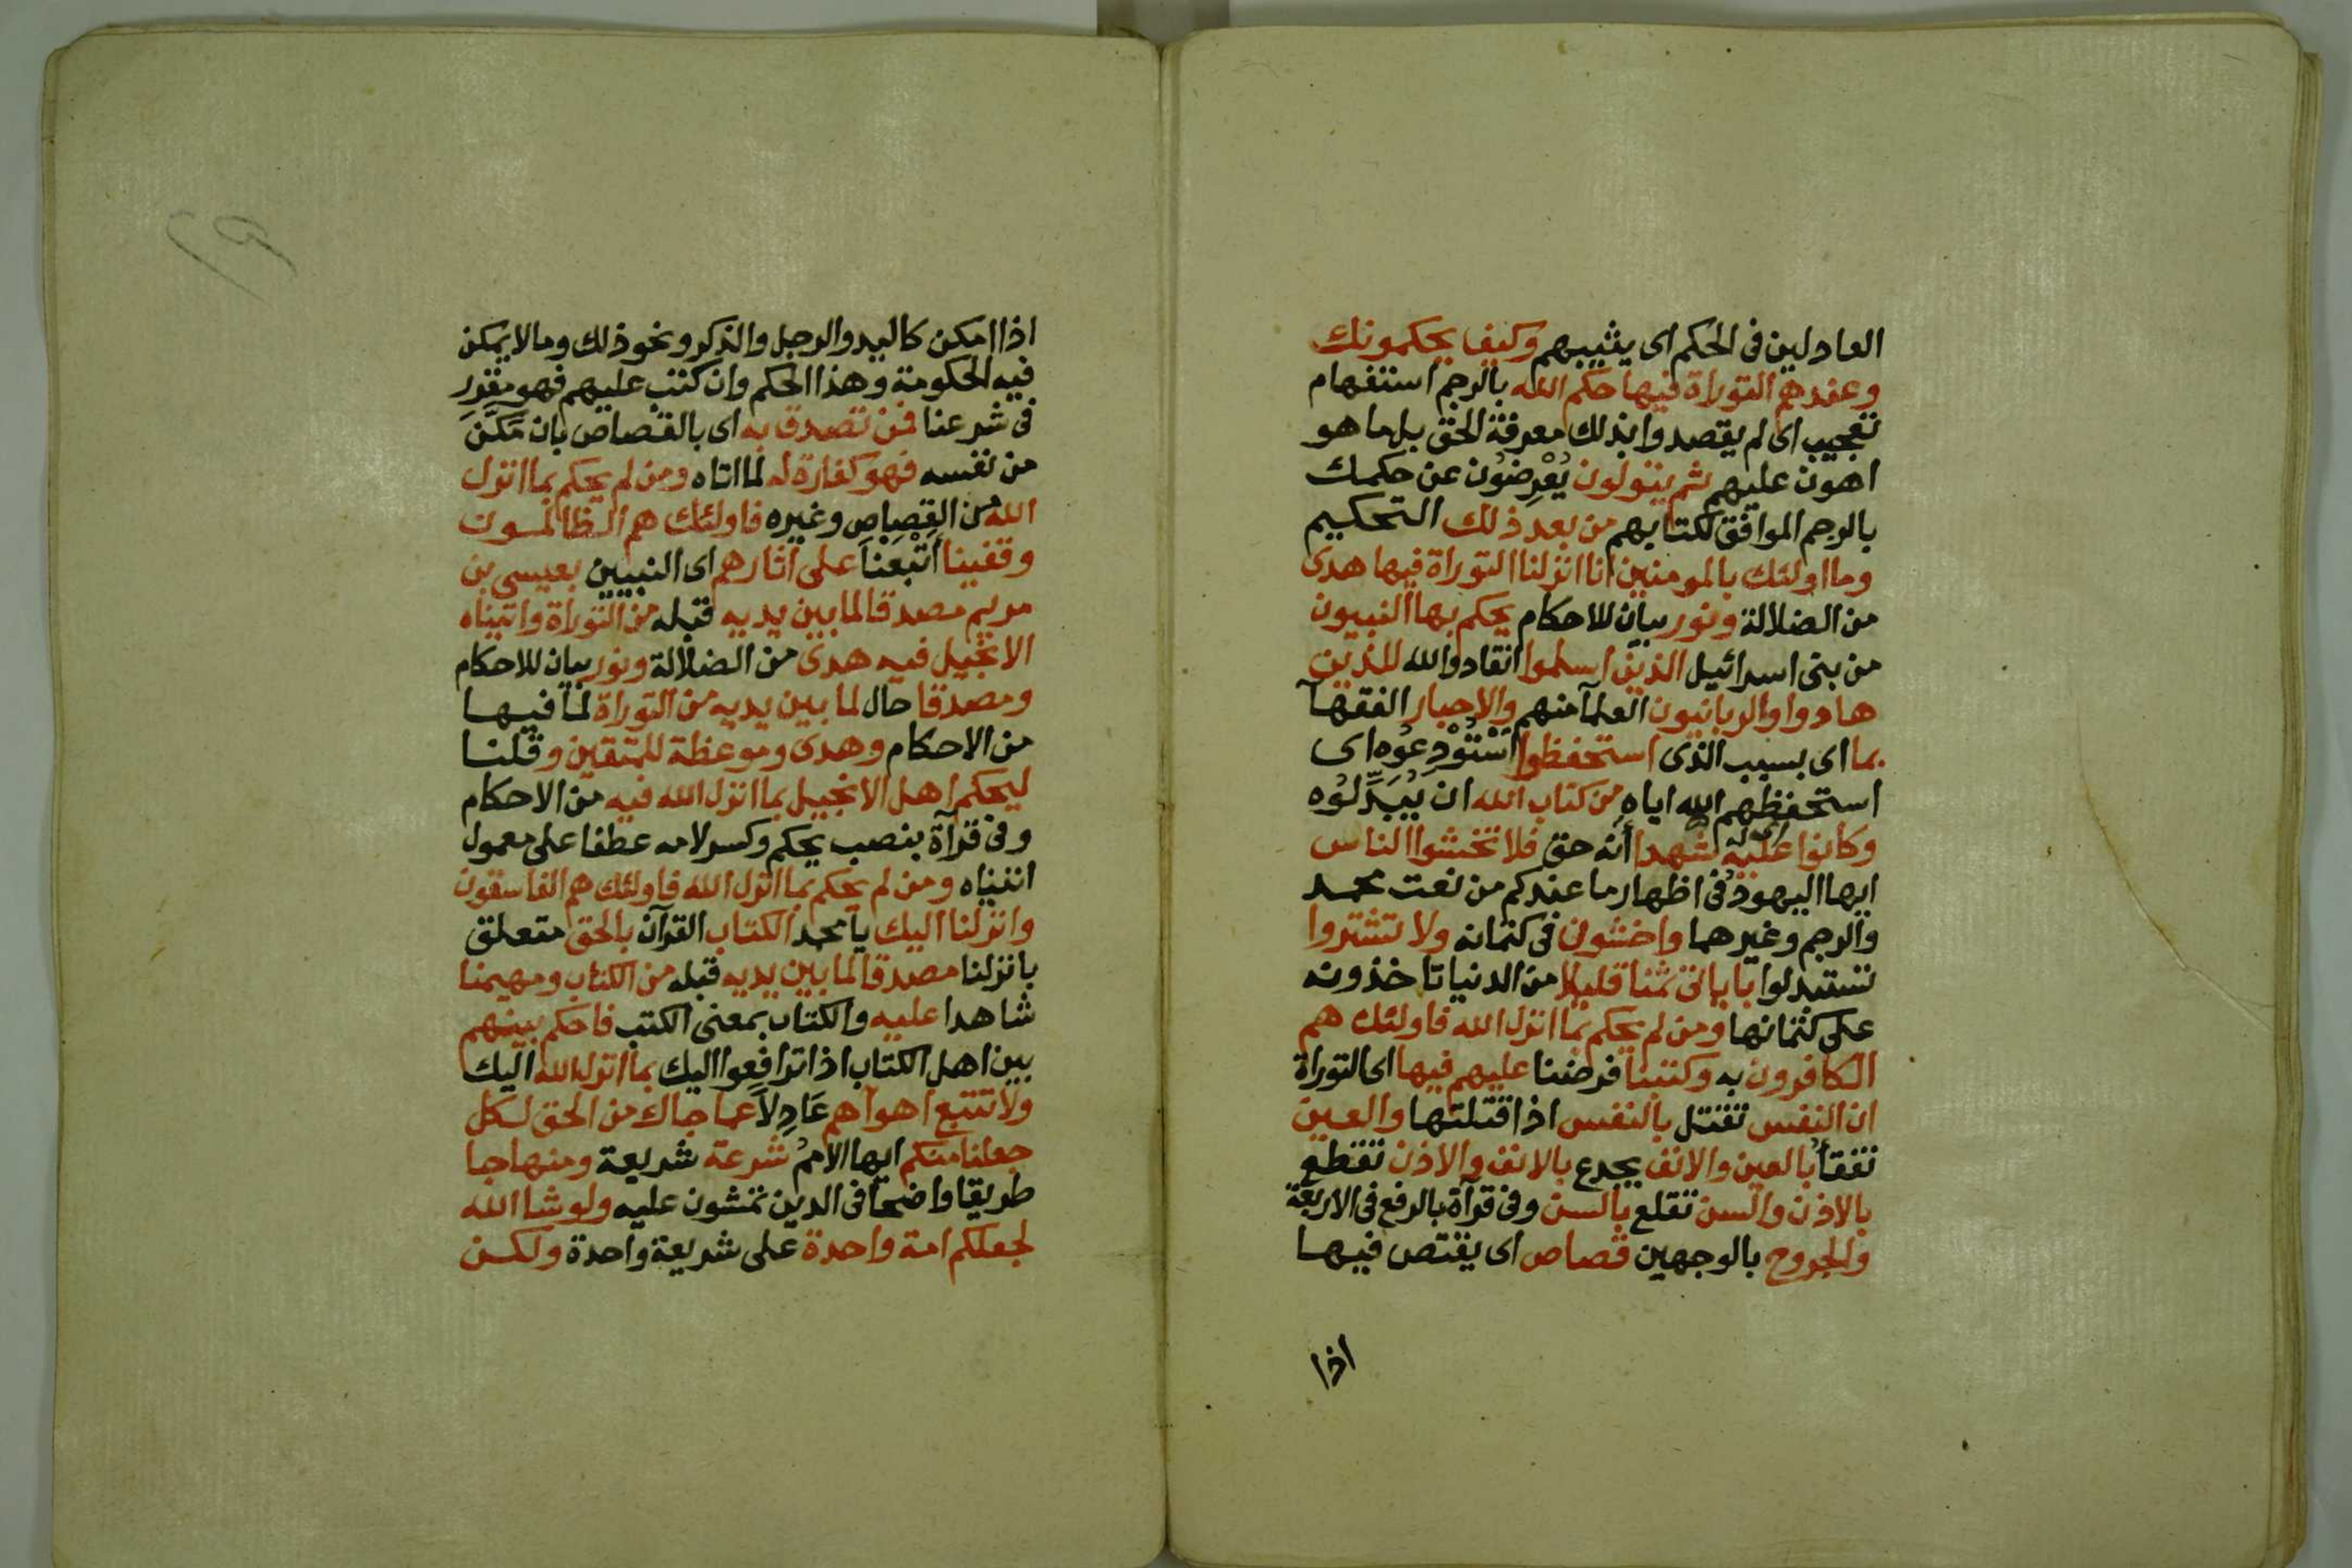 العادلين فى الحكم اى يثيبهم وكيف يحكمونك
وعندهم التوراة فيها حكم الله بالرجم استفهام
تعجيب اى لم يقصدوا بذلك معرفة الحق بل ما هو
اهون عليهم ثم يتولون يُعْرِضُون عن حكمك
بالرجم الموافق لكتابهم من بعد ذلك التحكيم
وما اولئك بالمومنين انا انزلنا التوراة فيها هدى
من الضلالة ونور بيان للاحكام يحكم بها النبيون
من بنى اسرائيل الذين اسلموا انقادوا لله للذين
هادوا والربانيون العلمآ منهم والاحبار الفقهآ
بما اى بسبب الذى استحفظوا اسْتُوْدِعُوه اى
استحفظهم الله اياه من كتاب الله ان يُبَدِّلُوه
وكانوا عليه شهدا أنه حق فلا تخشوا الناس
ايها اليهود فى اظهار ما عندكم من نعت محمد
والرجم وغيرهما واخشون فى كتمانه ولا تشتروا
تستبدلوا باياتى ثمنا قليلا من الدنيا تاخذونه
على كتمانها ومن لم يحكم بما انزل الله فاولئك هم
الكافرون به وكتبنا فرضنا عليهم فيها اى التوراة
ان النفس تقتل بالنفس اذا قتلتها والعين
تفقأُ بالعين والانف يجدع بالانف والاذن تقطع
بالاذن والسن تقلع بالسن وفى قرآة بالرفع فى الاربعة
والجروح بالوجهين قصاص اى يقتص فيها
اذا
اذا امكن كاليد والرجل والذكر ونحو ذلك وما لا يمكن
فيه الحكومة وهذا الحكم وان كتب عليهم فهو مقرر
فى شرعنا فمن تصدق به اى بالقصاص بان مَكَّنَ
من نفسه فهو كفارة له لما اتاه ومن لم يحكم بما انزل
الله من القِصَاصِ وغيره فاولئك هم الظالمسون
وقفينا أَتْبَعْنَا على اثارهم اى النبيين بعيسى بن
مريم مصدقا لما بين يديه قبله من التوراة واتيناه
الانجيل فيه هدى من الضلالة ونور بيان للاحكام
ومصدقا حال لما بين يديه من التوراة لما فيها
من الاحكام وهدى وموعظة للمتقين وقلنا
ليحكم اهل الانجيل بما انزل الله فيه من الاحكام
وفى قرآة بنصب يحكم وكسر لامه عطفا على معمول
اتيناه ومن لم يحكم بما انزل الله فاولئك هم الفاسقون
وانزلنا اليك يا محمد الكتاب القرآن بالحق متعلق
بانزلنا مصدقا لما بين يديه قبله من الكتاب ومهيمنا
شاهدا عليه والكتاب بمعنى الكتب فاحكم بينهم
بين اهل الكتاب اذا ترافعوا اليك بما انزل الله اليك
ولا تتبع اهوآهم عَادِلاً عما جاك من الحق لكل
جعلنا منكم ايها الاممُ شرعة شريعة ومنهاجا
طريقا واضحا فى الدين تمشون عليه ولو شا الله
لجعلكم امة واحدة على شريعة واحدة ولكن